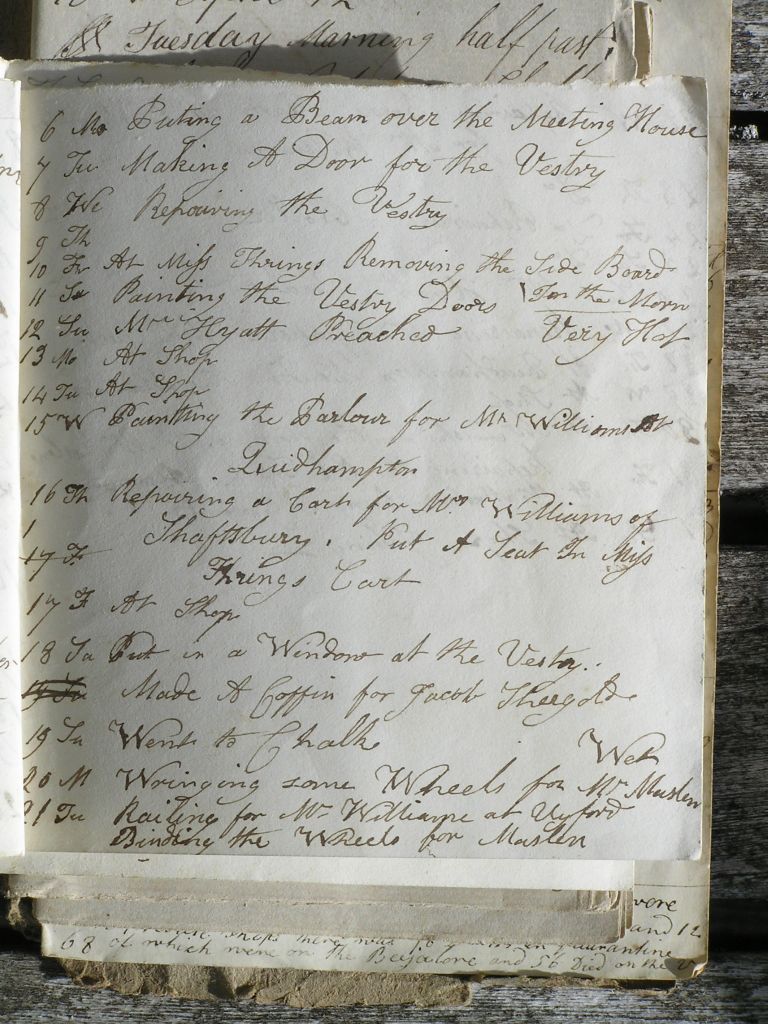 Tuesday Morning half past
6 Mo Puting a Beam over the Meeting House
7 Tu Making A Door for the Vestry
8 We Repairing the Vestry
9 Th
10 Fr At Miss Thrings Removing the Side Board
11 Sa Painting the Vestry Doors In the Morn
12 Su Mr Hyatt Preached Very Hot
13 Mo At Shop
14 Tu At Shop
15 W Painting the Parlour for Mr Williams At
Quidhampton
16 Th Repairing a Cart for Mrs Williams of
1 Shaftsbury. Put A Seat In Miss
17 F Thrings Cart
17 F At Shop
18 Sa Put in a Window at the Vestry..
Made A Coffin for Jacob Thergold
19 Su Went to Chalk Wet
20 M Wringing some Wheels for Mr Maslen
21 Tu Railing for Mr Williams at Ugford
Binding the Wheels for Maslen
were
ships there was in quarantine and 12
68 of which were on the and 56 Died on the